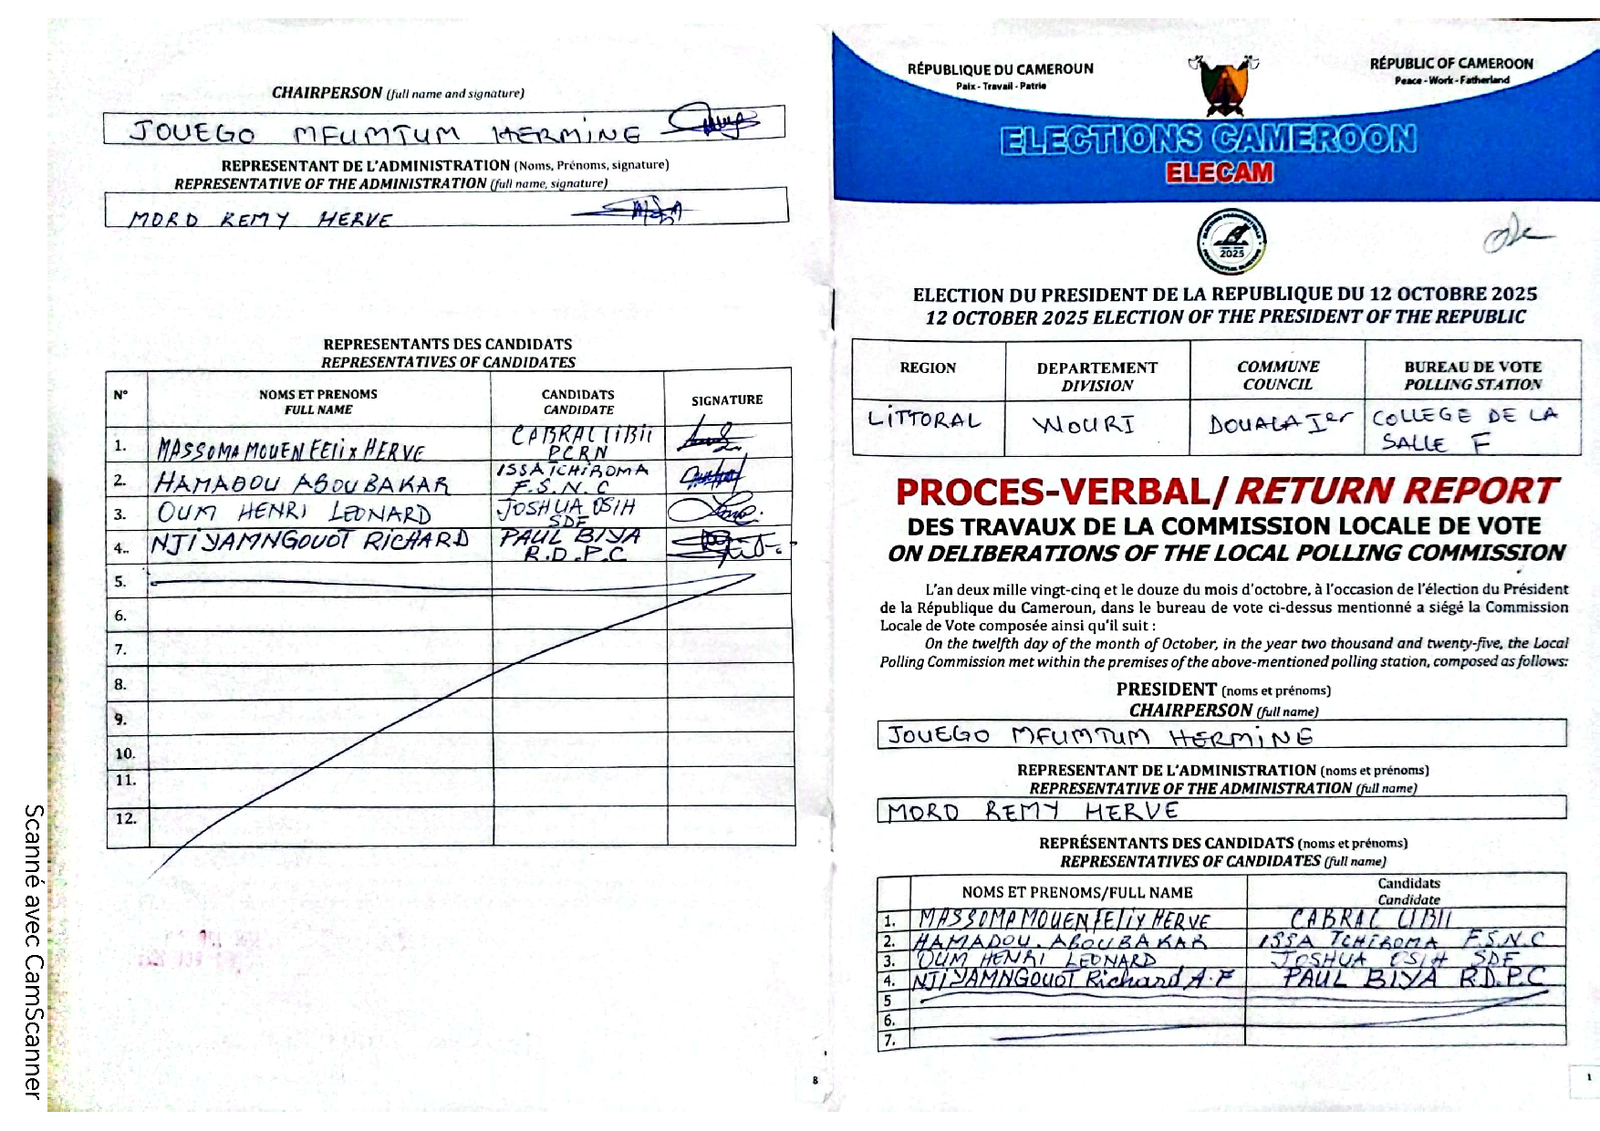 CHAIRPERSON (full name and signature)
JOUEGO MFUMTUM HERMINE
REPRESENTANT DE L'ADMINISTRATION (Noms, Prénoms, signature)
REPRESENTATIVE OF THE ADMINISTRATION (full name, signature)
MORD REMY HERVE
REPRESENTANTS DES CANDIDATS
REPRESENTATIVES OF CANDIDATES
N° NOMS ET PRENOMS FULL NAME CANDIDATS CANDIDATE SIGNATURE
1. MASSOMA MOUEN FELIX HERVE CABRAL LIBII PCRN
2. HAMADOU ABOUBAKAR ISSA TCHIROMA F.S.N.C
3. OUM HENRI LEONARD JOSHUA OSIH SDF
4.. NJIYAMNGOUOT RICHARD PAUL BIYA R.D.P.C
5.
6.
7.
8.
9.
10.
11.
12.
8
Scanné avec CamScanner
RÉPUBLIQUE DU CAMEROUN
Paix - Travail - Patrie
RÉPUBLIC OF CAMEROON
Peace - Work - Fatherland
ELECTIONS CAMEROON
ELECAM
2025
ELECTION DU PRESIDENT DE LA REPUBLIQUE DU 12 OCTOBRE 2025
12 OCTOBER 2025 ELECTION OF THE PRESIDENT OF THE REPUBLIC
REGION DEPARTEMENT DIVISION COMMUNE COUNCIL BUREAU DE VOTE POLLING STATION
LITTORAL WOURI DOUALA Ier COLLEGE DE LA SALLE F
PROCES-VERBAL/ RETURN REPORT
DES TRAVAUX DE LA COMMISSION LOCALE DE VOTE
ON DELIBERATIONS OF THE LOCAL POLLING COMMISSION
L'an deux mille vingt-cinq et le douze du mois d'octobre, à l'occasion de l'élection du Président
de la République du Cameroun, dans le bureau de vote ci-dessus mentionné a siégé la Commission
Locale de Vote composée ainsi qu'il suit :
On the twelfth day of the month of October, in the year two thousand and twenty-five, the Local
Polling Commission met within the premises of the above-mentioned polling station, composed as follows:
PRESIDENT (noms et prénoms)
CHAIRPERSON (full name)
JOUEGO MFUMTUM HERMINE
REPRESENTANT DE L'ADMINISTRATION (noms et prénoms)
REPRESENTATIVE OF THE ADMINISTRATION (full name)
MORD REMY HERVE
REPRÉSENTANTS DES CANDIDATS (noms et prénoms)
REPRESENTATIVES OF CANDIDATES (full name)
NOMS ET PRENOMS/FULL NAME Candidats Candidate
1. MASSOMA MOUEN FELIX HERVE CABRAL LIBII
2. HAMADOU. ABOUBAKAR ISSA TCHIROMA F.S.N.C
3. OUM HENRI LEONARD JOSHUA OSIH SDF
4. NJIYAMNGOUOT Richard A.F PAUL BIYA R.D.P.C
5
6.
7.
1